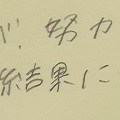 努力
結果に